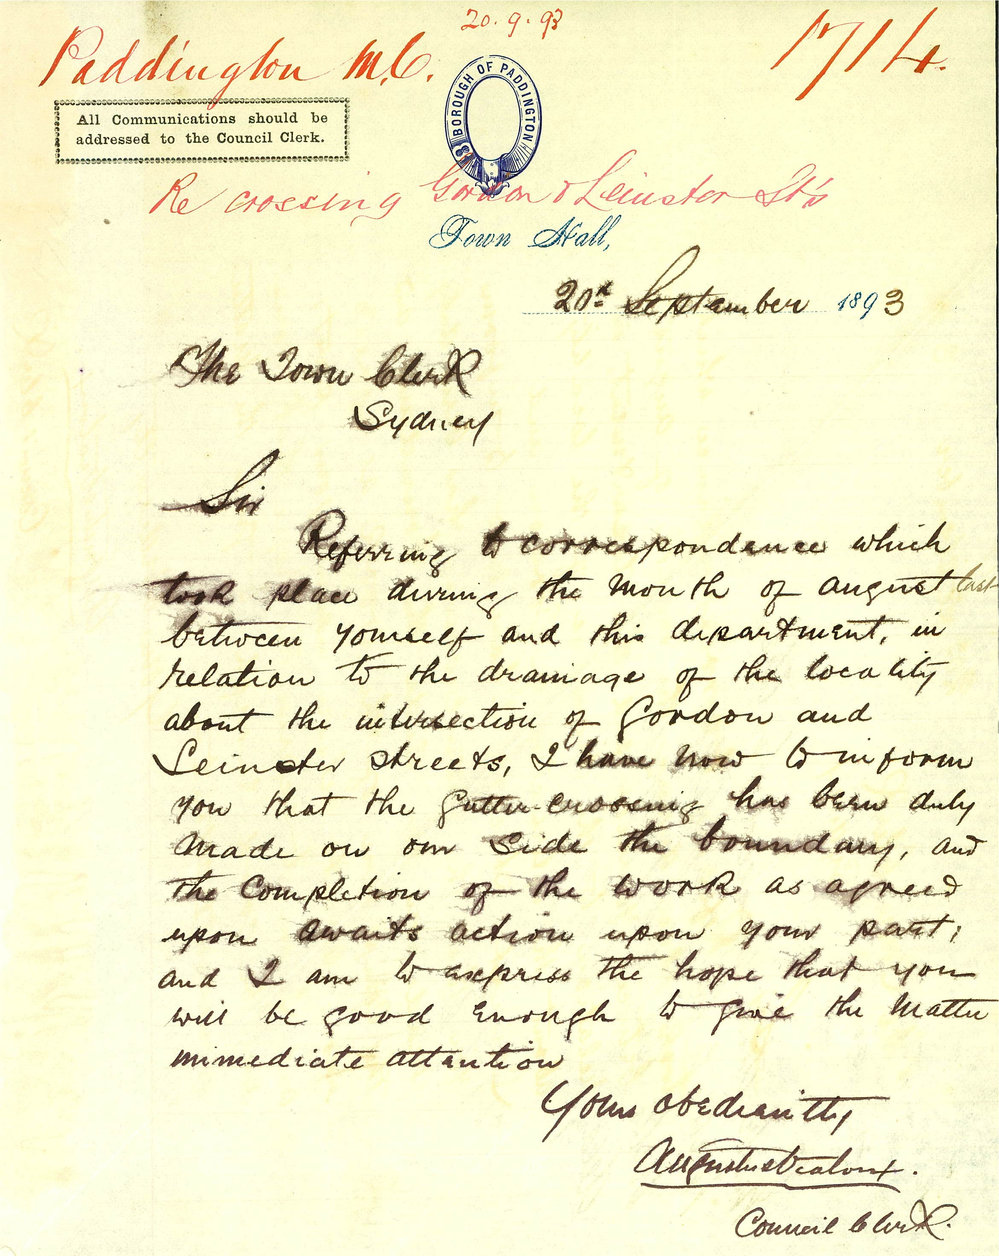 20.9.93
Paddington M.C.
1714.
All Communications should be
addressed to the Council Clerk.
BOROUGH OF PADDINGTON
Re crossing Gordon & Leinster St's
Town Hall,
20th September 1893
The Town Clerk
Sydney
Sir
Referring to correspondence which
took place during the month of August last
between yourself and this department, in
relation to the drainage of the locality
about the intersection of Gordon and
Leinster streets, I have now to inform
you that the gutter-crossing has been duly
made on our side the boundary, and
the completion of the work as agreed
upon awaits action upon your part;
and I am to express the hope that you
will be good enough to give the matter
immediate attention
Yours obediently
Council Clerk.